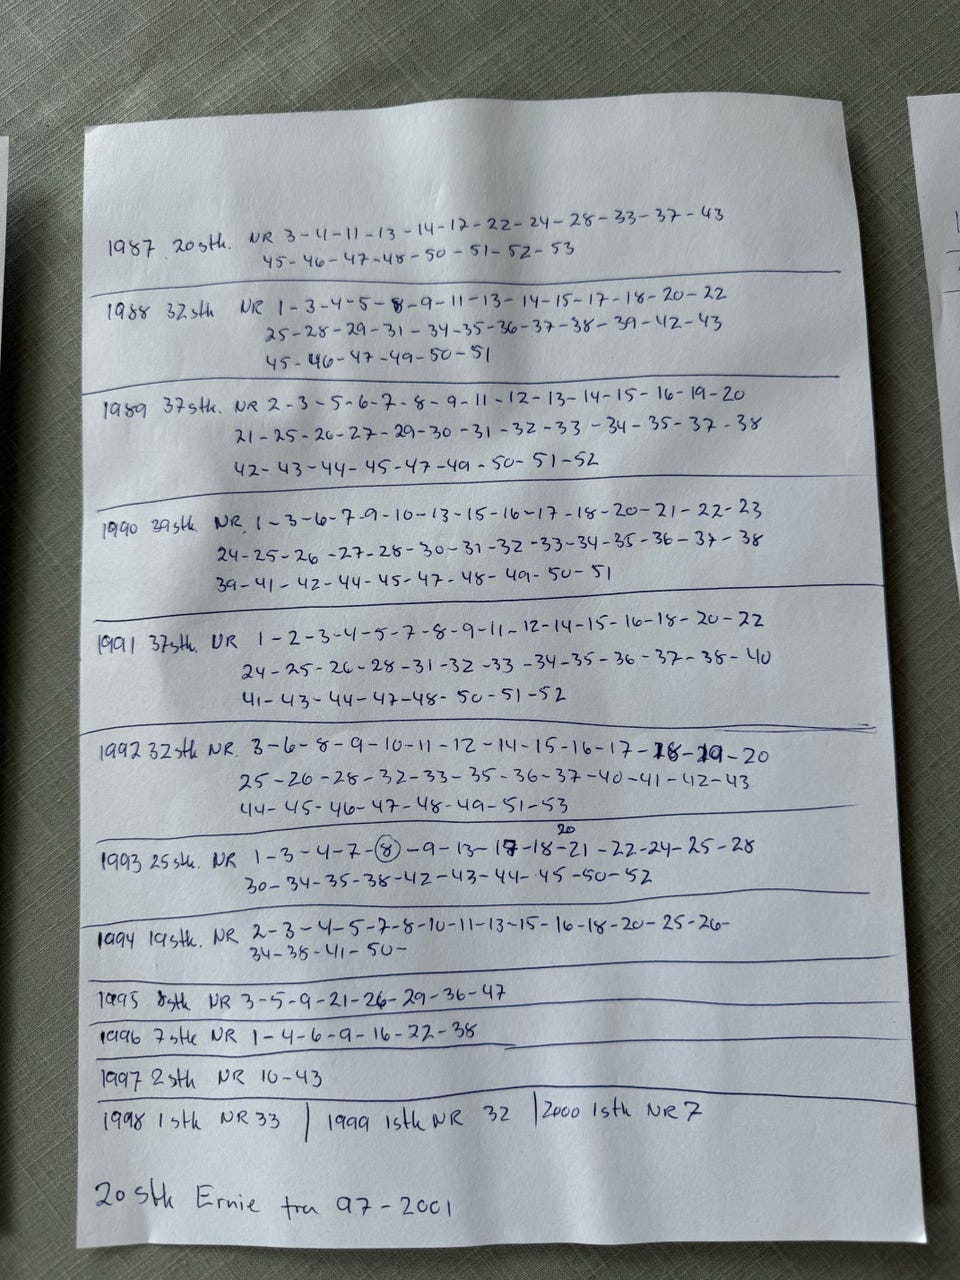 1987 20stk. NR 3-4-11-13-14-17-22-24-28-33-37-43
45-46-47-48-50-51-52-53
1988 32stk NR 1-3-4-5-8-9-11-13-14-15-17-18-20-22
25-28-29-31-34-35-36-37-38-39-42-43
45-46-47-49-50-51
1989 37stk. NR 2-3-5-6-7-8-9-11-12-13-14-15-16-19-20
21-25-26-27-29-30-31-32-33-34-35-37-38
42-43-44-45-47-49-50-51-52
1990 39stk NR. 1-3-6-7-9-10-13-15-16-17-18-20-21-22-23
24-25-26-27-28-30-31-32-33-34-35-36-37-38
39-41-42-44-45-47-48-49-50-51
1991 37stk. NR 1-2-3-4-5-7-8-9-11-12-14-15-16-18-20-22
24-25-26-28-31-32-33-34-35-36-37-38-40
41-43-44-47-48-50-51-52
1992 32stk NR. 3-6-8-9-10-11-12-14-15-16-17-18-19-20
25-26-28-32-33-35-36-37-40-41-42-43
44-45-46-47-48-49-51-53
1993 25stk. NR 1-3-4-7-8-9-13-17-18-20-21-22-24-25-28
30-34-35-38-42-43-44-45-50-52
1994 19stk. NR 2-3-4-5-7-8-10-11-13-15-16-18-20-25-26-
34-38-41-50-
1995 8stk NR 3-5-9-21-26-29-36-47
1996 7stk NR 1-4-6-9-16-22-38
1997 2stk NR 10-43
1998 1stk NR 33 | 1999 1stk NR 32 | 2000 1stk NR 7
20 Stk Ernie fra 97-2001